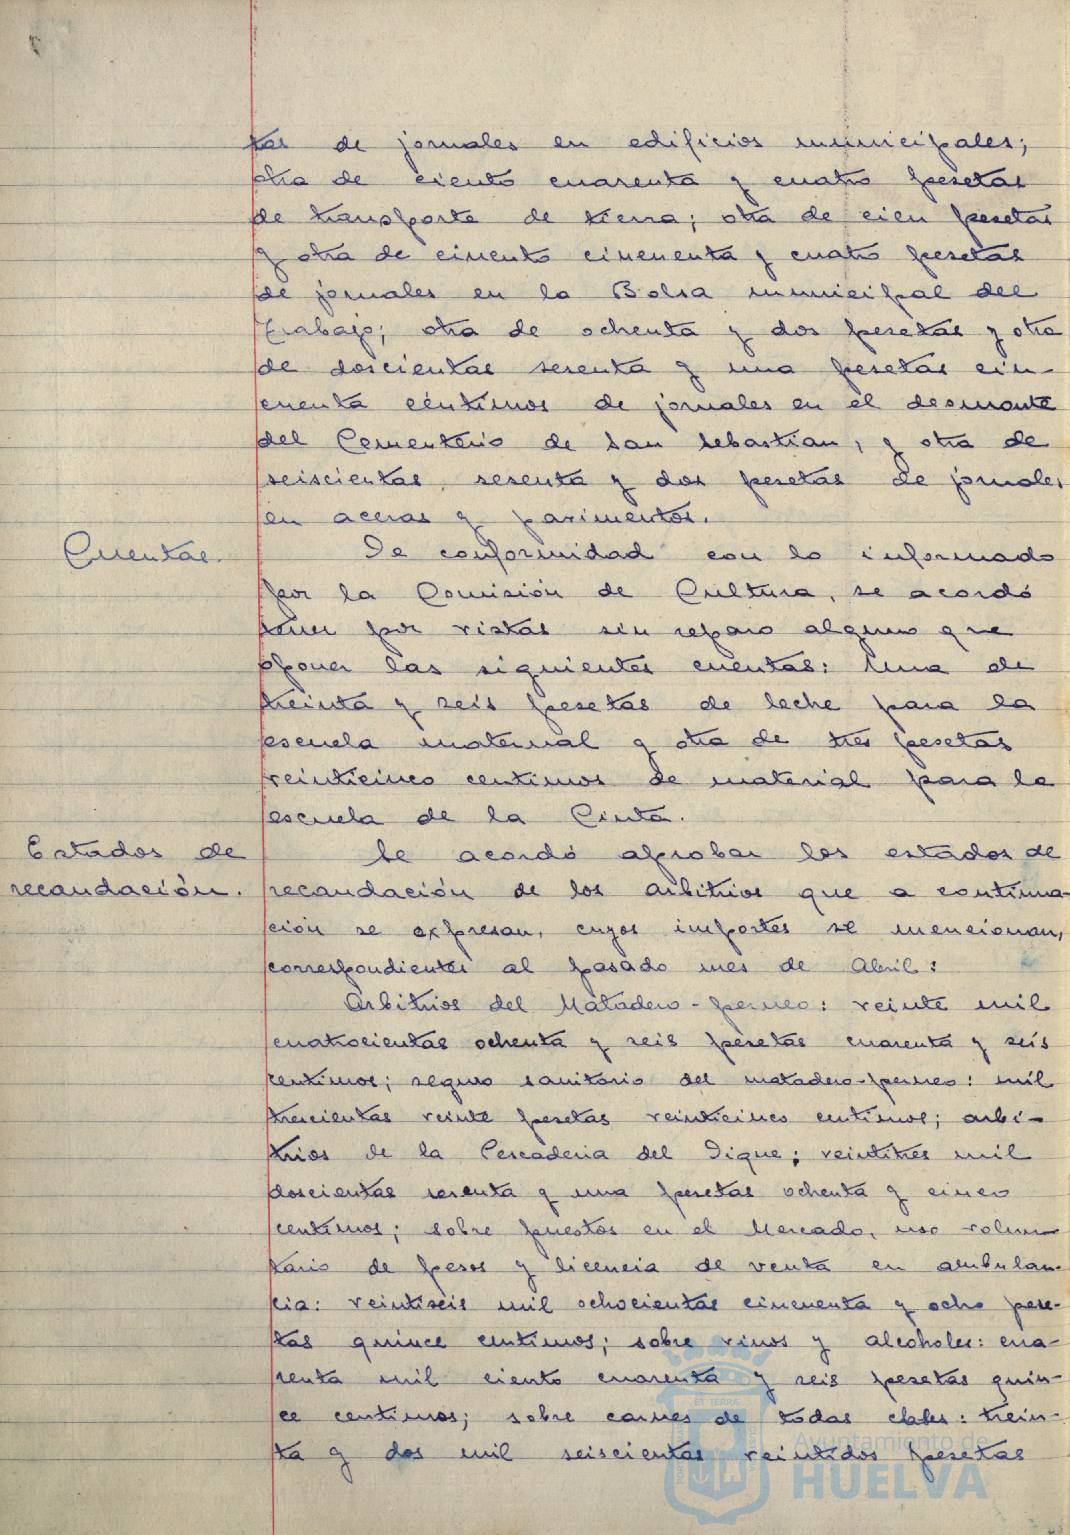 tas de jornales en edificios municipales;
otra de ciento cuarenta y cuatro pesetas
de transporte de tierra; otra de cien pesetas
y otra de cincuenta y cuatro pesetas
de jornales en la Bolsa municipal del
Trabajo; otra de ochenta y dos pesetas y otra
de doscientas sesenta y una pesetas cin-
cuenta céntimos de jornales en el desmonte
del Cementerio de San Sebastian, y otra de
seiscientas sesenta y dos pesetas de jornales
en aceras y pavimentos.
Cuentas. De conformidad con lo informado
por la Comisión de Cultura, se acordó
tener por vistas sin reparo alguno que
oponer las siguientes cuentas: Una de
treinta y seis pesetas de leche para la
escuela maternal y otra de tres pesetas
veinticinco centimos de material para la
escuela de la Cinta.
Estados de Se acordó aprobar los estados de
recaudación. recaudación de los arbitrios que a continua-
ción se expresan, cuyos importes se mencionan,
correspondientes al pasado mes de Abril:
Arbitrios del Matadero-perneo: veinte mil
cuatrocientas ochenta y seis pesetas cuarenta y seis
centimos; seguro sanitario del matadero-perneo: mil
trescientas veinte pesetas veinticinco centimos; arbi-
trios de la Pescaderia del Dique; veintitres mil
doscientas sesenta y una pesetas ochenta y cinco
centimos; sobre puestos en el Mercado, uso volun-
tario de pesos y licencia de venta en ambulan-
cia: veintiseis mil ochocientas cincuenta y ocho pese-
tas quince centimos; sobre vinos y alcoholes: cua-
renta mil ciento cuarenta y seis pesetas quin-
ce centimos; sobre carnes de todas clases: trein-
ta y dos mil seiscientas veintidos pesetas
Ayuntamiento de
HUELVA